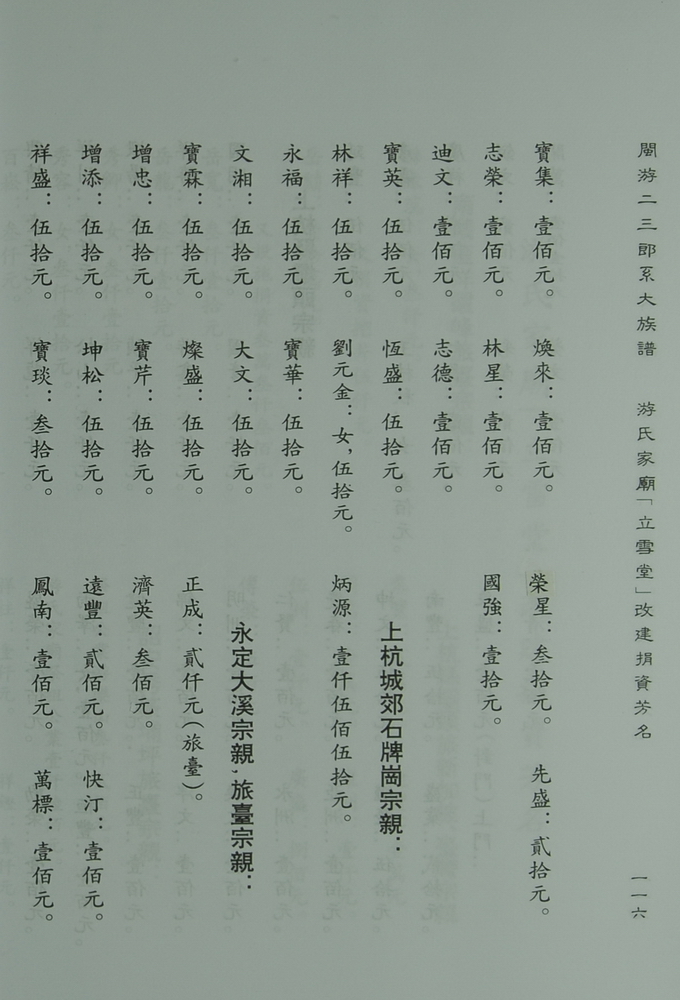 閩游二三郎系大族譜 游氏家廟「立雪堂」改建捐資芳名 一一六
寶集：壹佰元。 煥來：壹佰元。 榮星：叁拾元。 先盛：貳拾元。
志榮：壹佰元。 林星：壹佰元。 國強：壹拾元。
迪文：壹佰元。 志德：壹佰元。
寶英：伍拾元。 恆盛：伍拾元。 上杭城郊石牌崗宗親：
林祥：伍拾元。 劉元金：女，伍拾元。 炳源：壹仟伍佰伍拾元。
永福：伍拾元。 寶華：伍拾元。
文湘：伍拾元。 大文：伍拾元。 永定大溪宗親，旅臺宗親：
寶霖：伍拾元。 燦盛：伍拾元。 正成：貳仟元（旅臺）。
增忠：伍拾元。 寶芹：伍拾元。 濟英：叁佰元。
增添：伍拾元。 坤松：伍拾元。 遠豐：貳佰元。 快汀：壹佰元。
祥盛：伍拾元。 寶琰：叁拾元。 鳳南：壹佰元。 萬標：壹佰元。